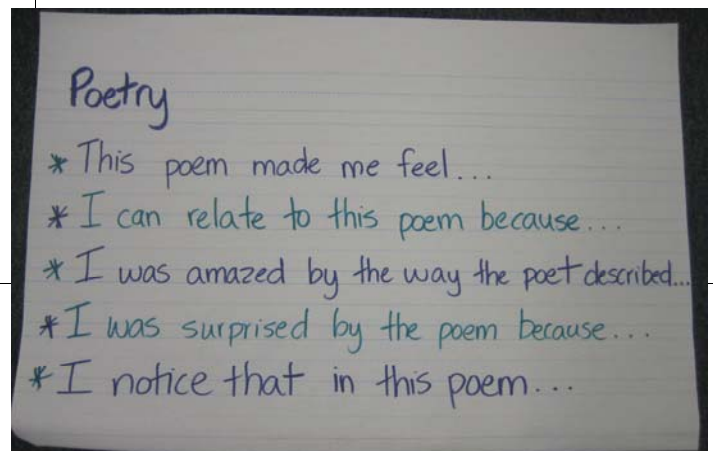 Poetry
* This poem made me feel...
* I can relate to this poem because...
* I was amazed by the way the poet described...
* I was surprised by the poem because...
* I notice that in this poem...